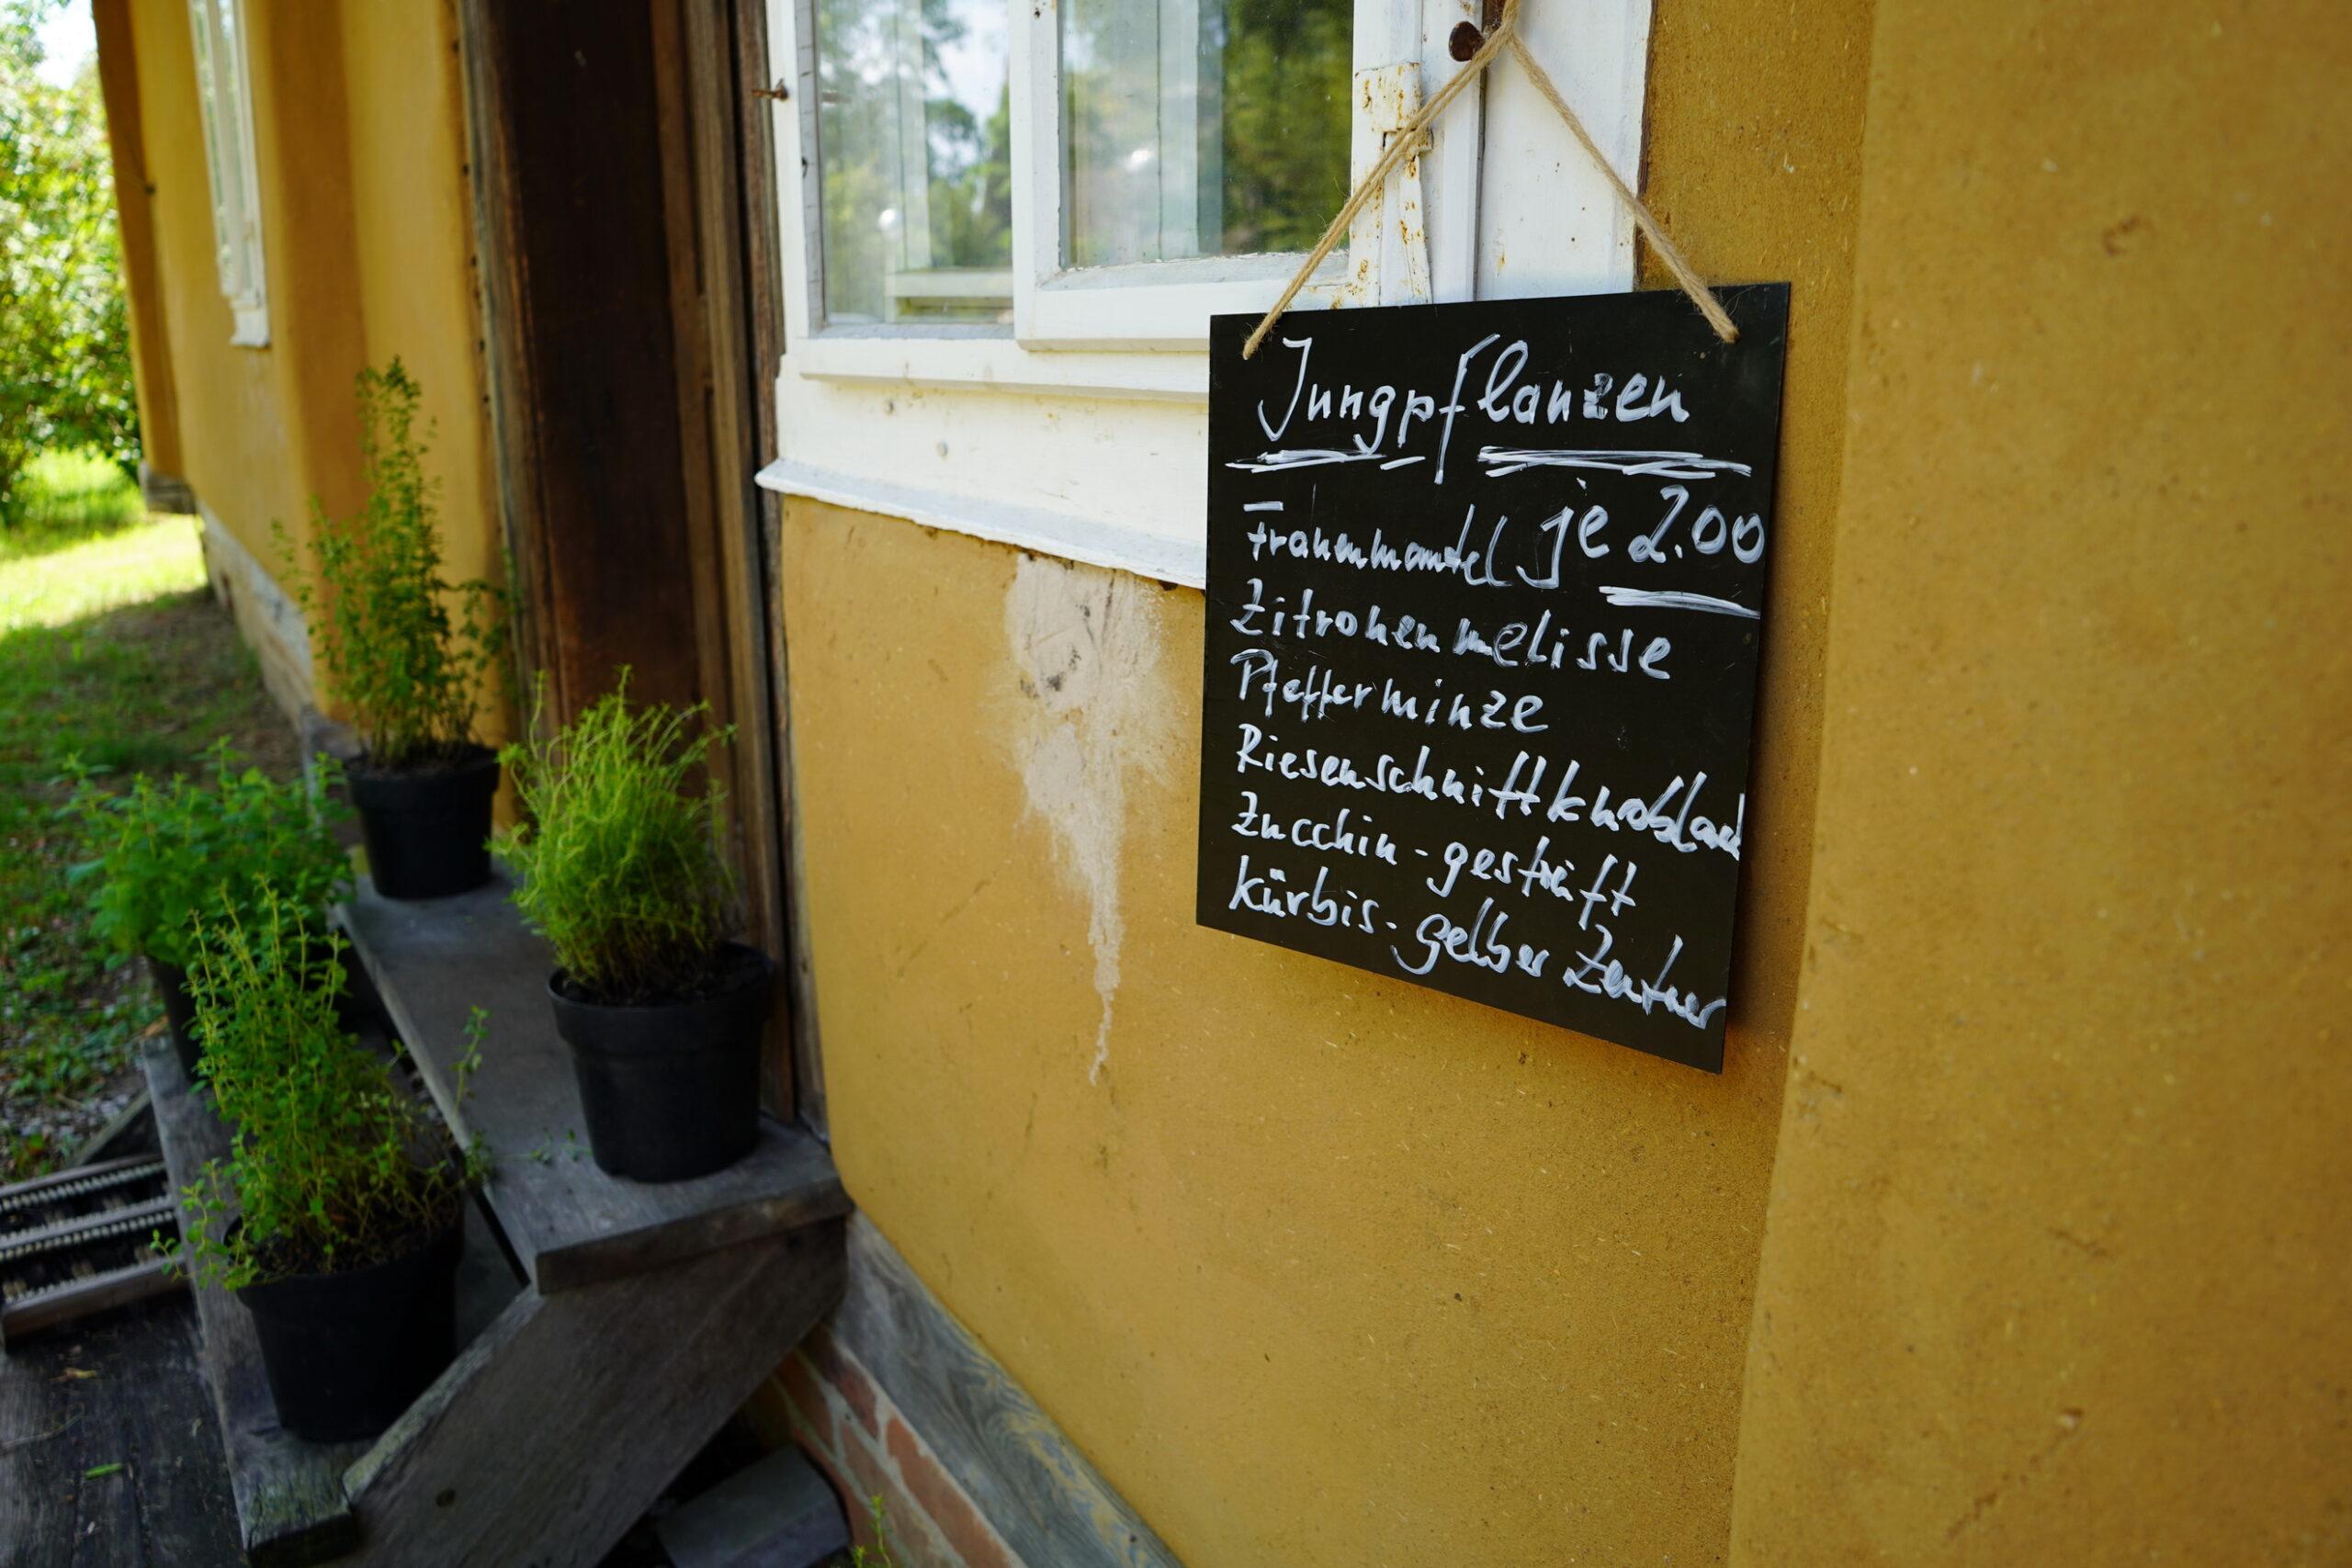 Jungpflanzen
Frauenmantel je 2.00
Zitronenmelisse
Pfefferminze
Riesenschnittknoblauch
Zucchin - gestreift
Kürbis - gelber Zentner